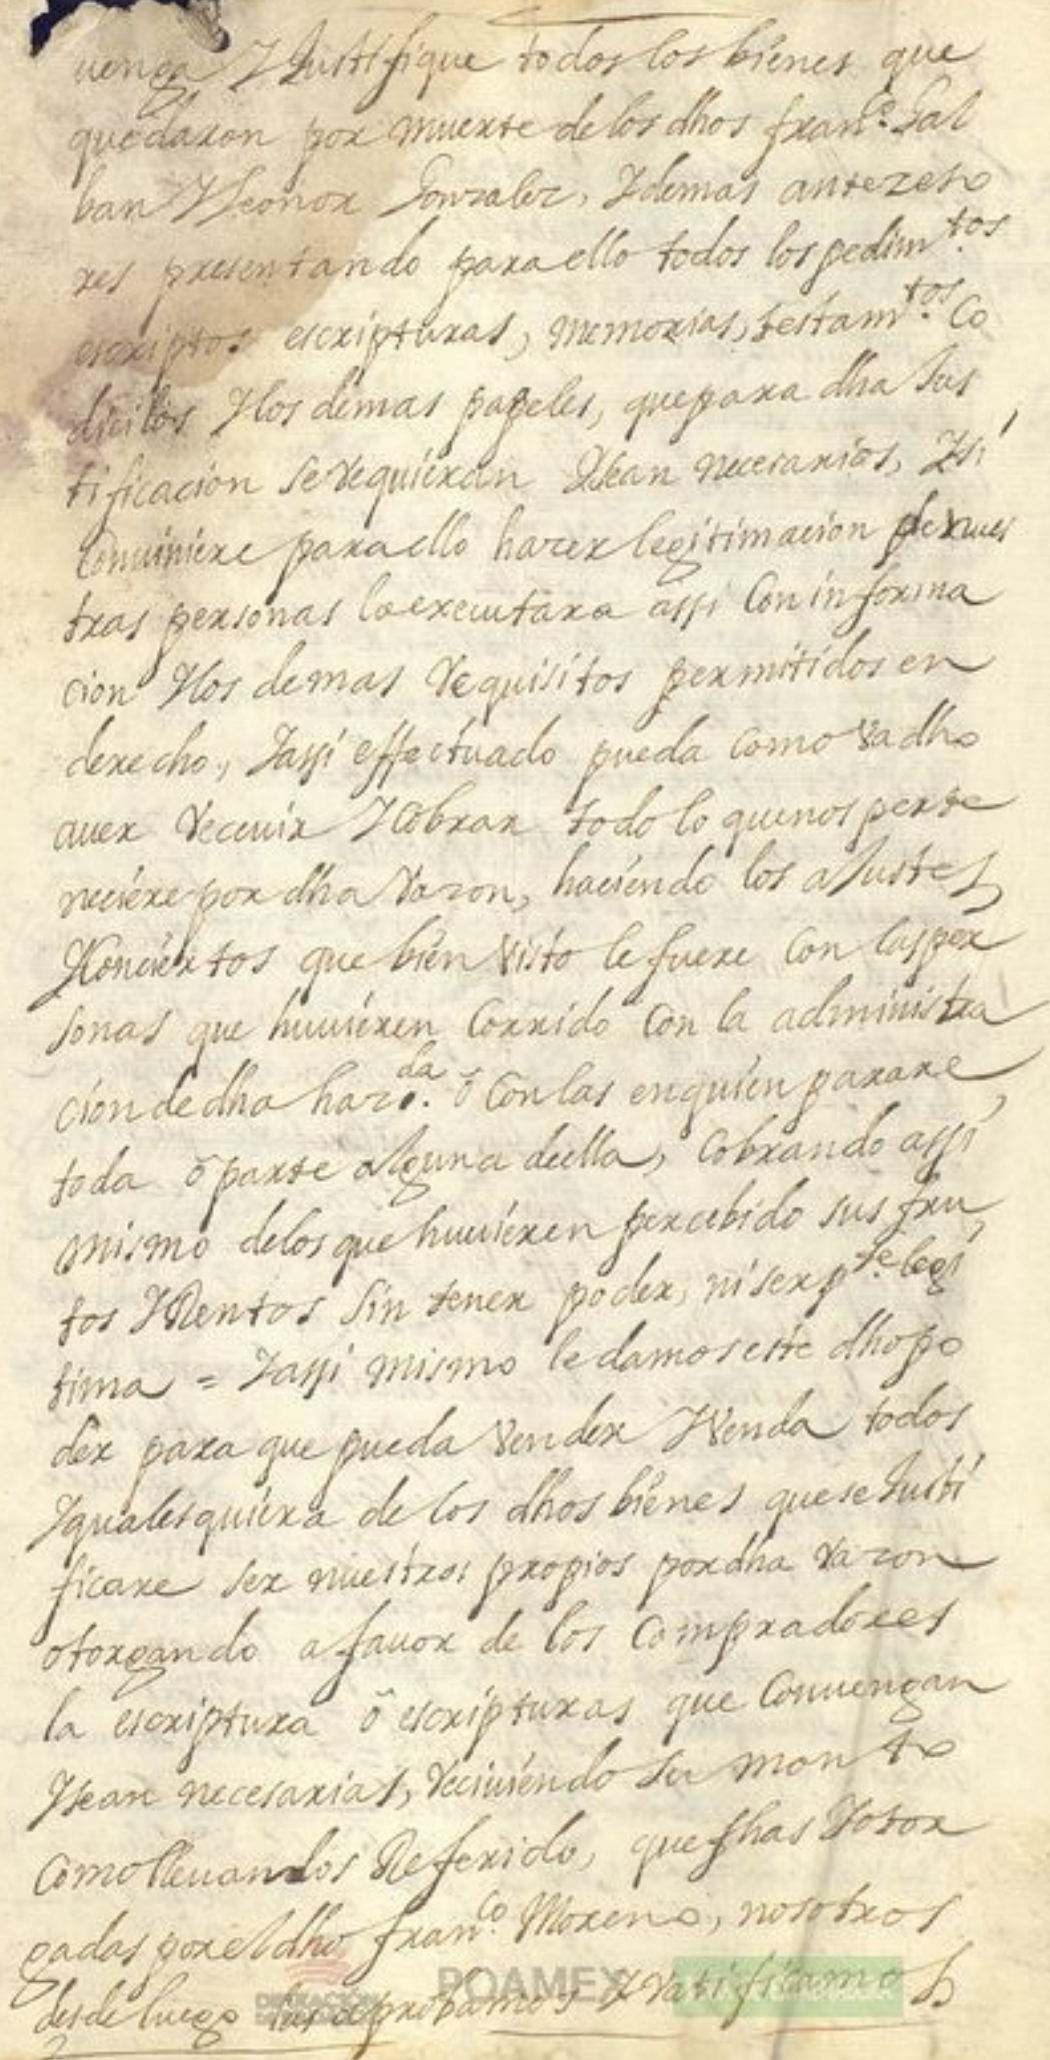 uenga Y Justifique todos los bienes que
quedaron por muerte de los dhos fran.co Gal
ban Y Leonor Gonzalez, Y demas anteceso
res presentando para ello todos los pedim.tos
escriptos escripturas, memorias, testam.tos Co
dicilos Y los demas papeles, que para dha Jus
tificacion se requieran Y sean necesarios, Y si
Conuiniere para ello hazer legitimacion de nues
tras personas la executara assi Con informa
cion Y los demas requisitos permitidos en
derecho, Y assi effectuado pueda como va dho
auer receuir Y Cobrar todo lo que nos perte
neciere por dha razon, haciendo los aJustes
Y Conciertos que bien visto le fuere Con las per
sonas que huuieren Corrido Con la administra
cion de dha haz.da ò Con las en quien parare,
toda ò parte alguna de ella, Cobrando assi
mismo de los que huuieren percebido sus fru
tos Y Rentos Sin tener poder, ni ser p.te legi
tima = Y assi mismo le damos este dho po
der para que pueda vender Y venda todos
Y qualesquiera de los dhos bienes que se Justi
ficare ser nuestros propios por dha razon
otorgando a fauor de los Compradores
la escriptura ò escripturas que Conuengan
Y sean necesarias, reciuiendo su monto
Como lleuamos Referido, que fhas Y otor
gadas por el dho fran.co Moreno, nosotros
desde luego las aprobamos Y ratificamos
POAMEX